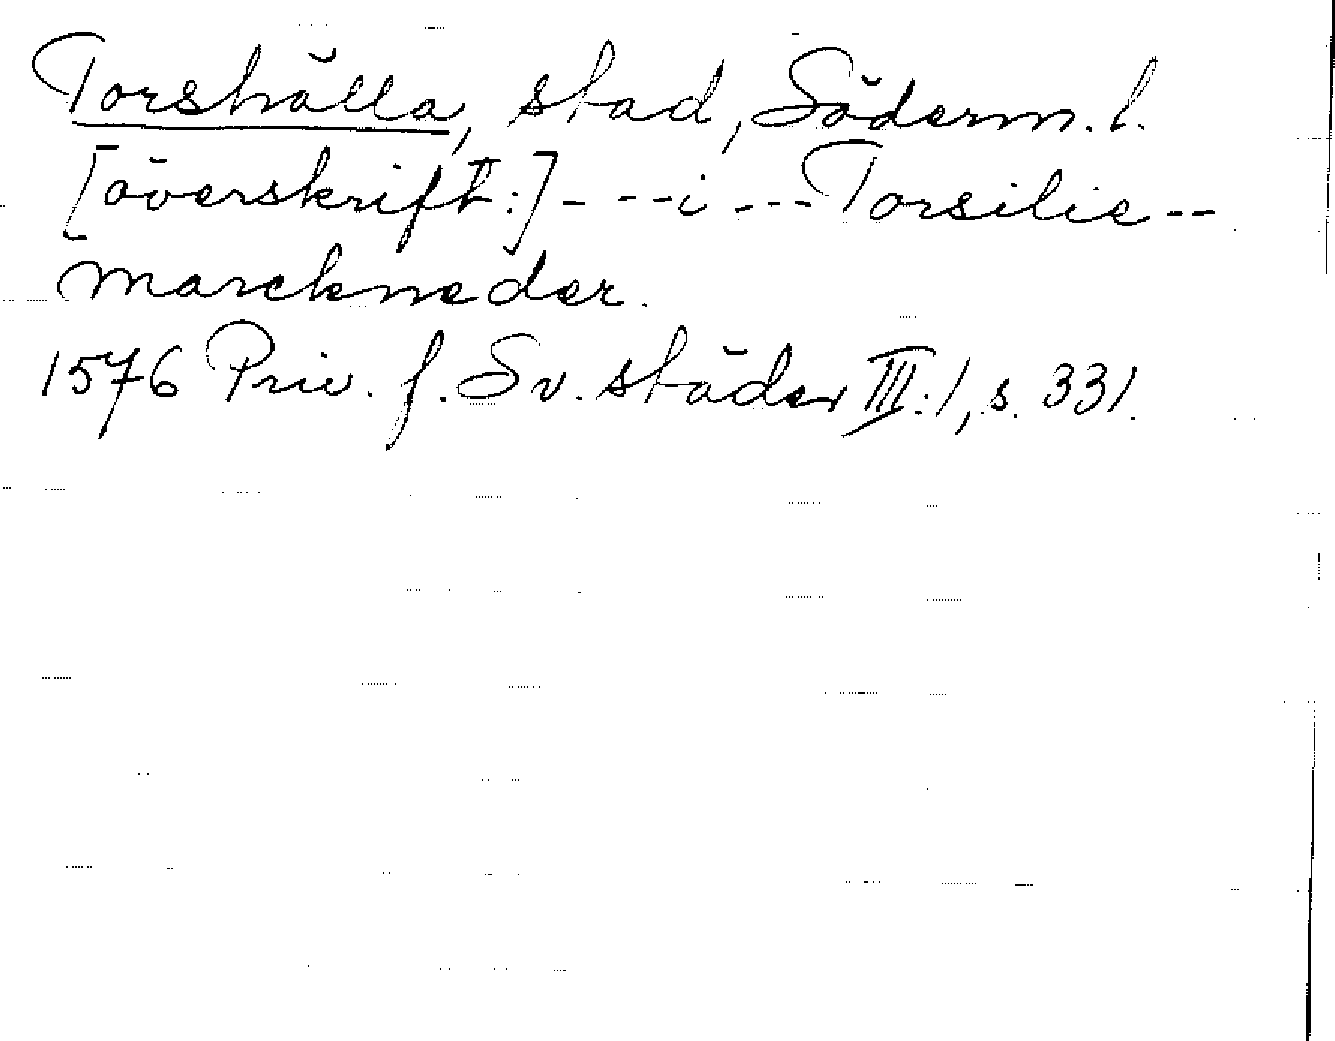 Torshälla, stad, Söderm. l.
[överskrift:] - --i --- Torsilie --
marckneder.
1576 Priv. f. Sv. städer III:1, s. 331.